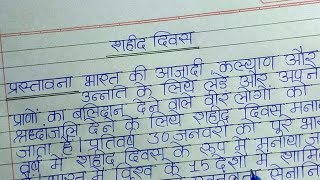 शहीद दिवस
प्रस्तावना भारत की आजादी कल्याण और
उन्नति के लिये लड़े और अपने
प्राणों का बलिदान देने वाले वीर लोगों को
श्रध्दांजलि देने के लिये शहीद दिवस मनाया
जाता है। प्रतिवर्ष 30 जनवरी को पूरे भारत
वर्ष में शहीद दिवस के रूप में मनाया जाता
भारत में विश्व के 15 देशों में शामिल